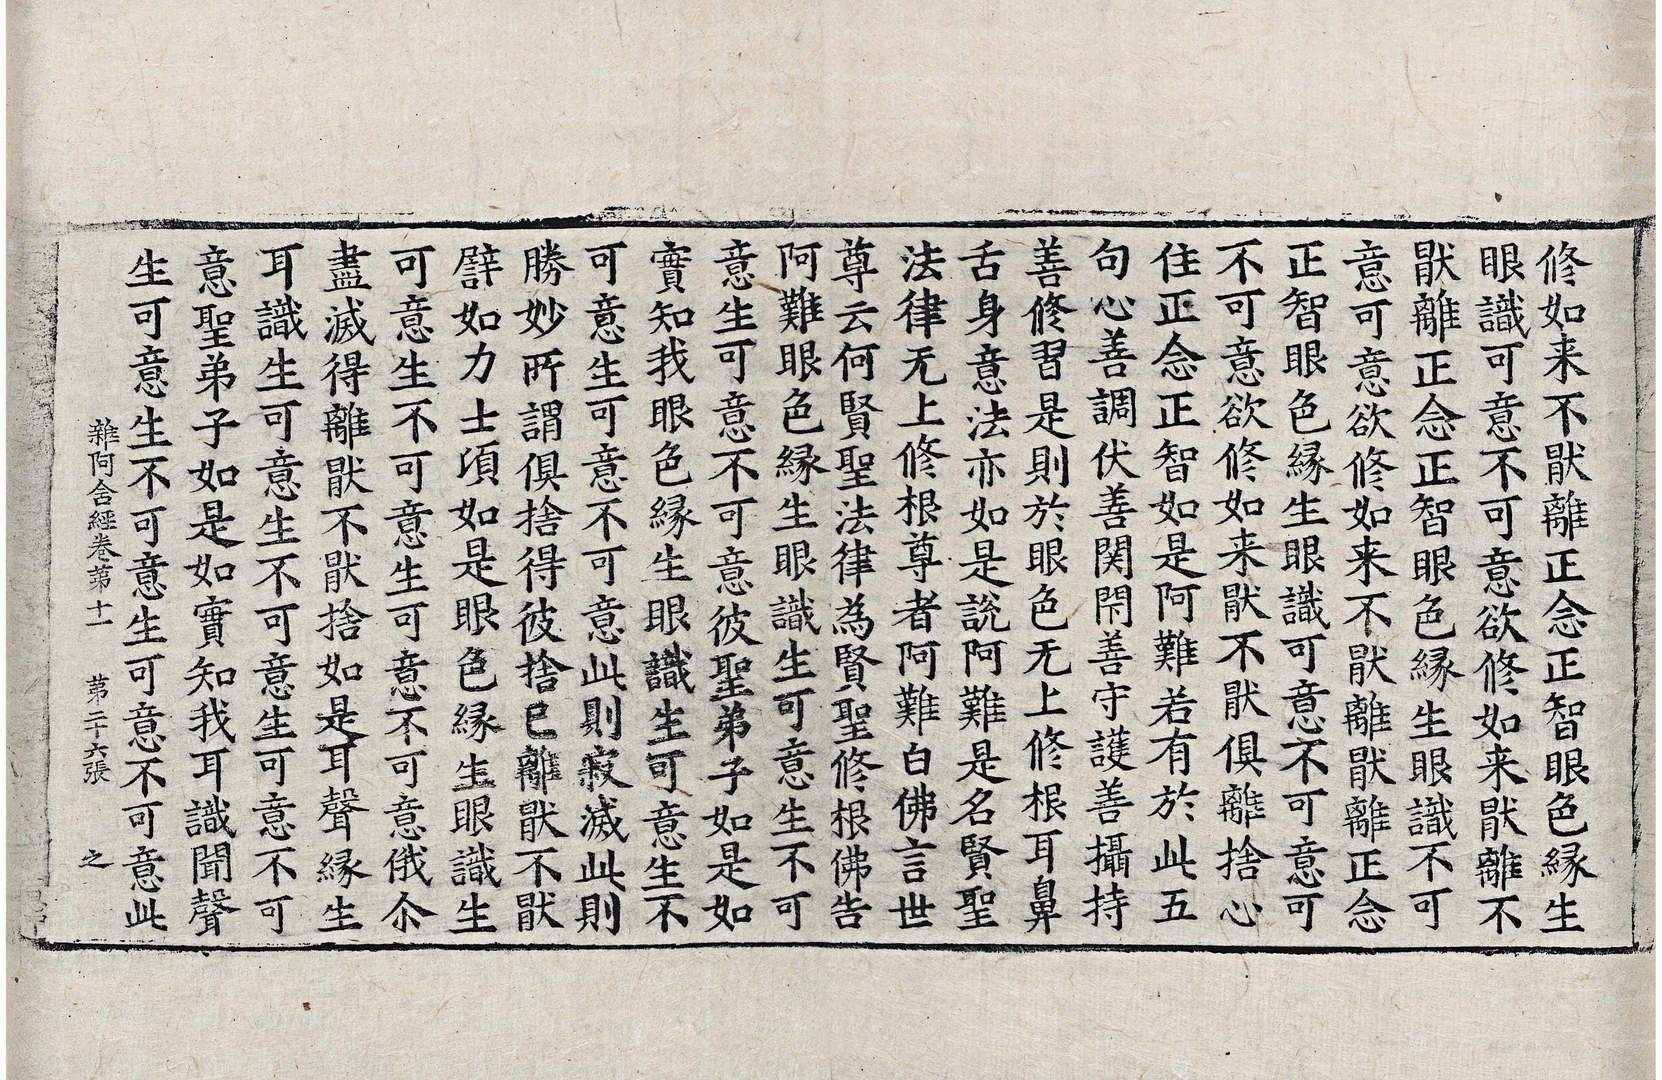 修如来不猒離正念正智眼色縁生
眼識可意不可意欲修如来猒離不
猒離正念正智眼色縁生眼識不可
意可意欲修如来不猒離猒離正念
正智眼色縁生眼識可意不可意可
不可意欲修如来猒不猒俱離捨心
住正念正智如是阿難若有於此五
句心善調伏善関閇善守護善攝持
善修習是則於眼色无上修根耳鼻
舌身意法亦如是說阿難是名賢聖
法律无上修根尊者阿難白佛言世
尊云何賢聖法律為賢聖修根佛告
阿難眼色縁生眼識生可意生不可
意生可意不可意彼聖弟子如是如
實知我眼色縁生眼識生可意生不
可意生可意不可意此則寂滅此則
勝妙所謂俱捨得彼捨已離猒不猒
譬如力士頃如是眼色縁生眼識生
可意生不可意生可意不可意俄尒
盡滅得離猒不猒捨如是耳聲縁生
耳識生可意生不可意生可意不可
意聖弟子如是如實知我耳識聞聲
生可意生不可意生可意不可意此
雜阿含經卷第十一 第二十六張 之